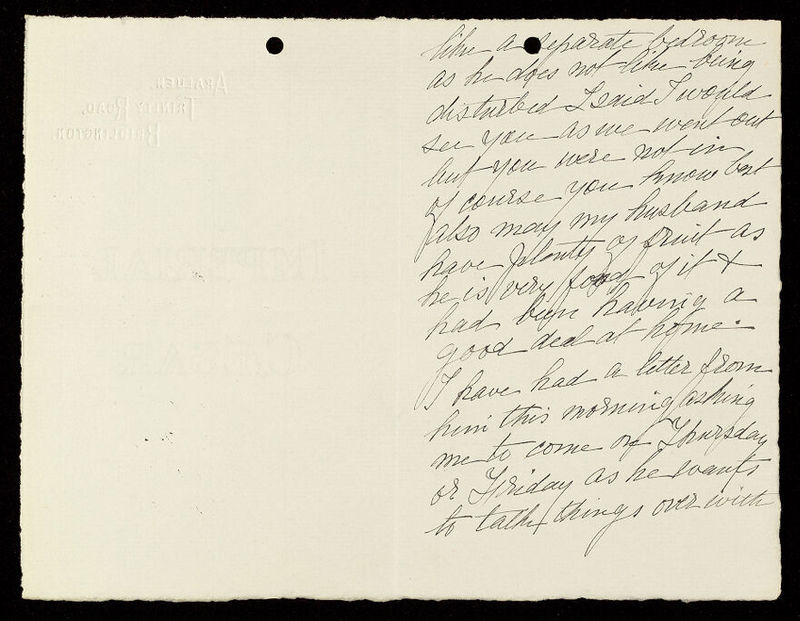 ARALUEN.
TRINITY ROAD,
BRIDLINGTON.
IMPERIAL
like a separate bedroom
as he does not like being
disturbed I said I would
see you as we went out
but you were not in
of course you know best
also may my husband
have plenty of fruit as
he is very fond of it &
had been having a
good deal at home.
I have had a letter from
him this morning asking
me to come on Thursday
or Friday as he wants
to talk things over with